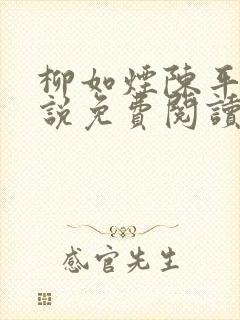 柳如煙陳平
說免費閱讀
感官先生